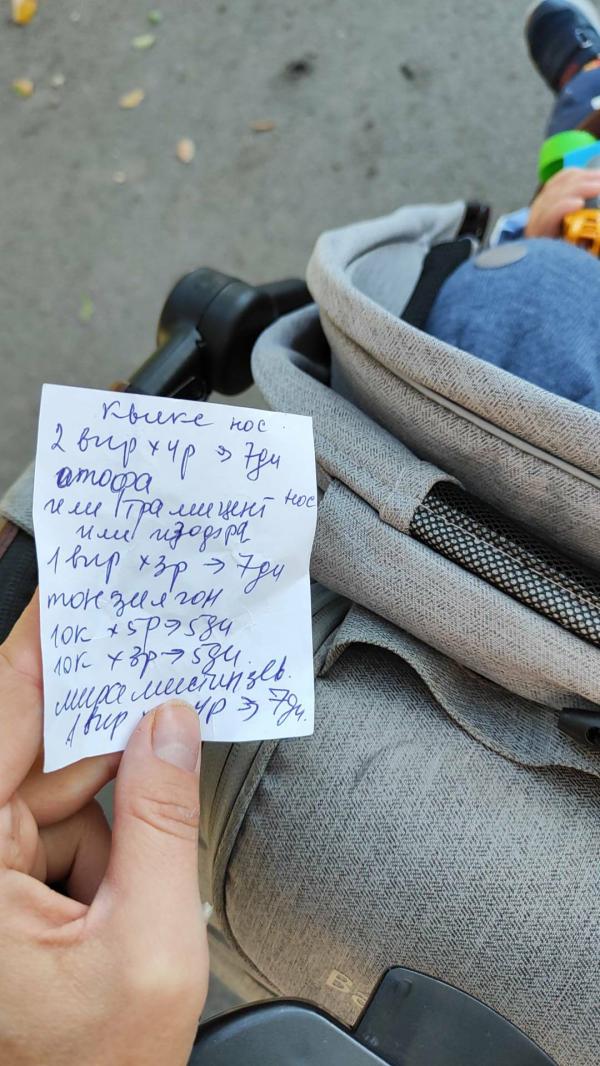 квикс нос.
2 впр х 4р → 7дн
изофра
или Трамицент нос
или изофра
1 впр х 3р → 7дн
тонзилгон
10к х 5р → 5дн
10к х 3р → 5дн.
мирамистин зев.
1 впр 4р → 7дн.
Be